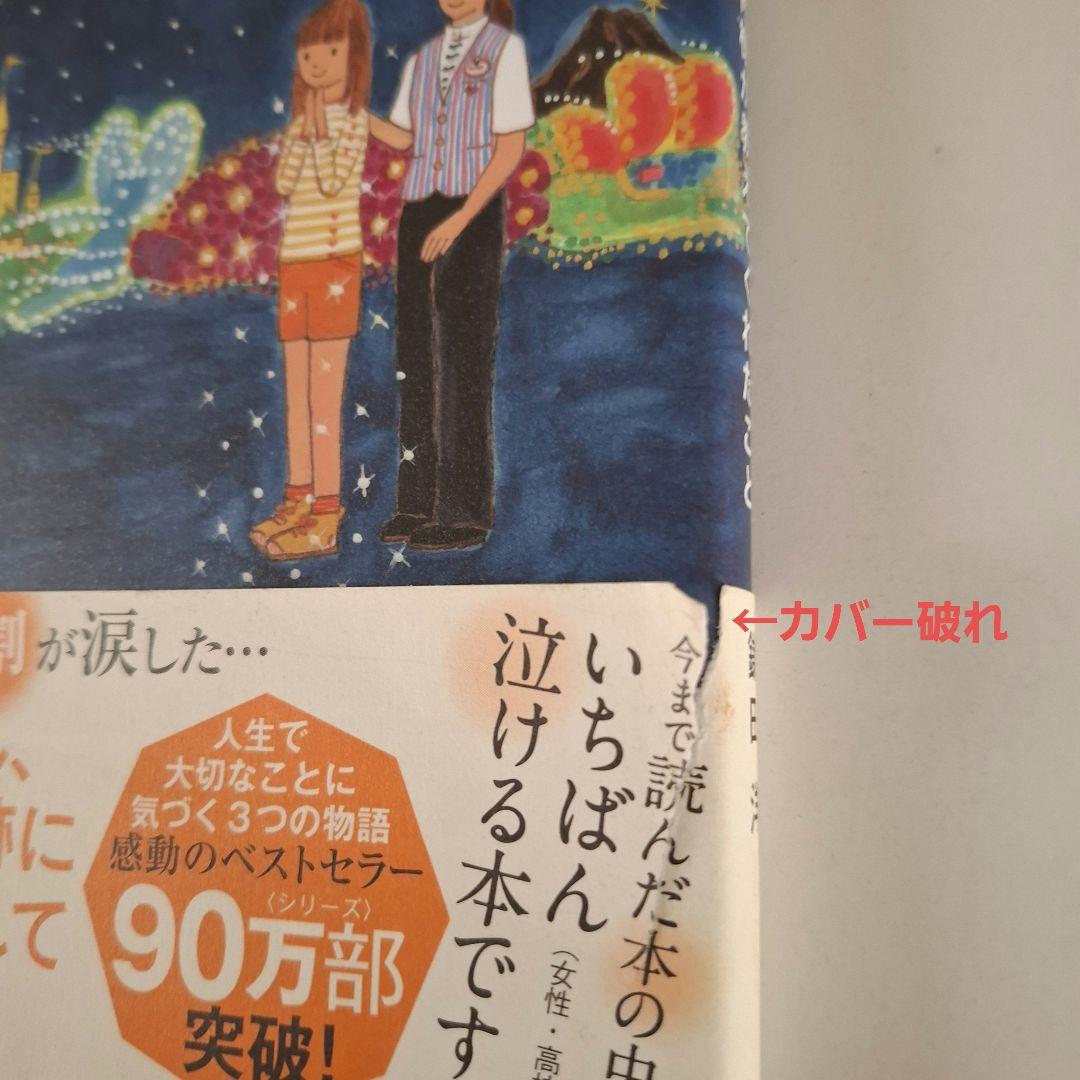 ←カバー破れ
今まで読んだ本の中
いちばん
泣ける本です
(女性・高
割が涙した…
人生で
大切なことに
気づく3つの物語
感動のベストセラー
〈シリーズ〉
90万部
突破!
跡に
して
鎌田 洋
くれたこと